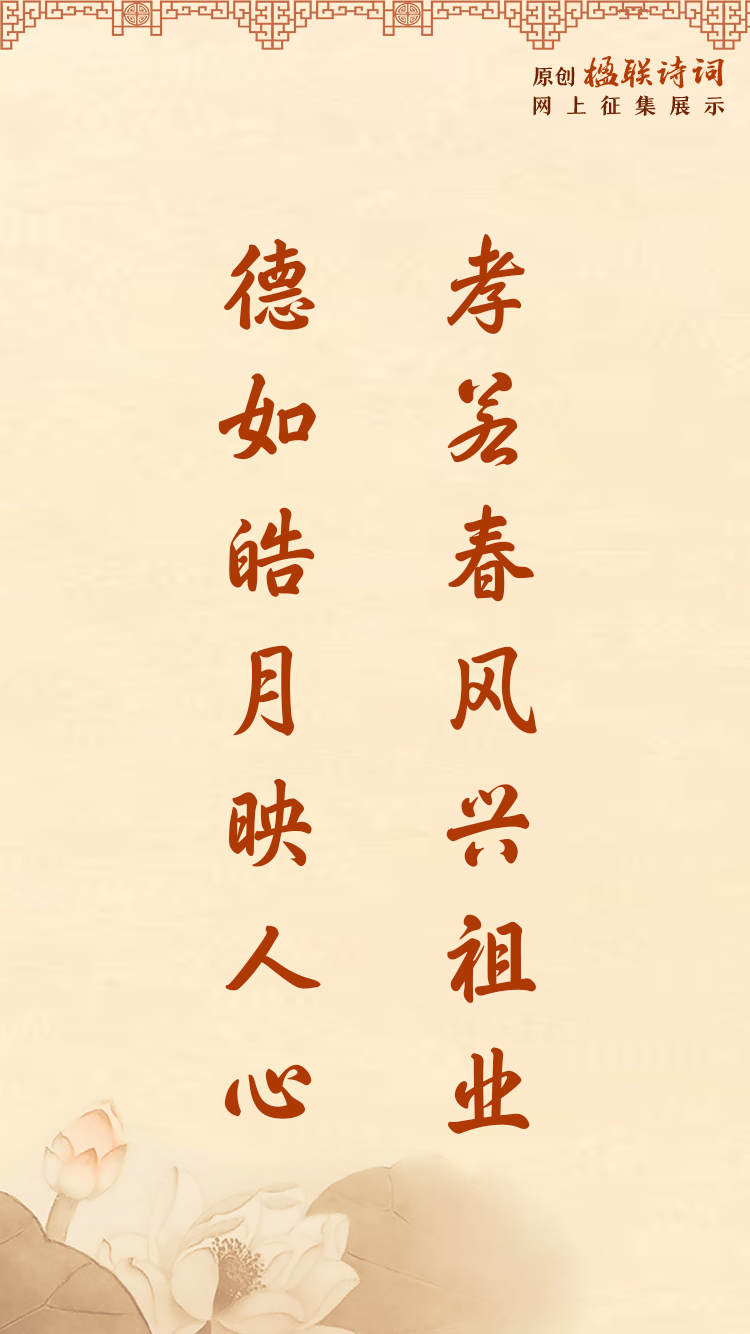 原创 楹联诗词
网上征集展示
孝若春风兴祖业
德如皓月映人心